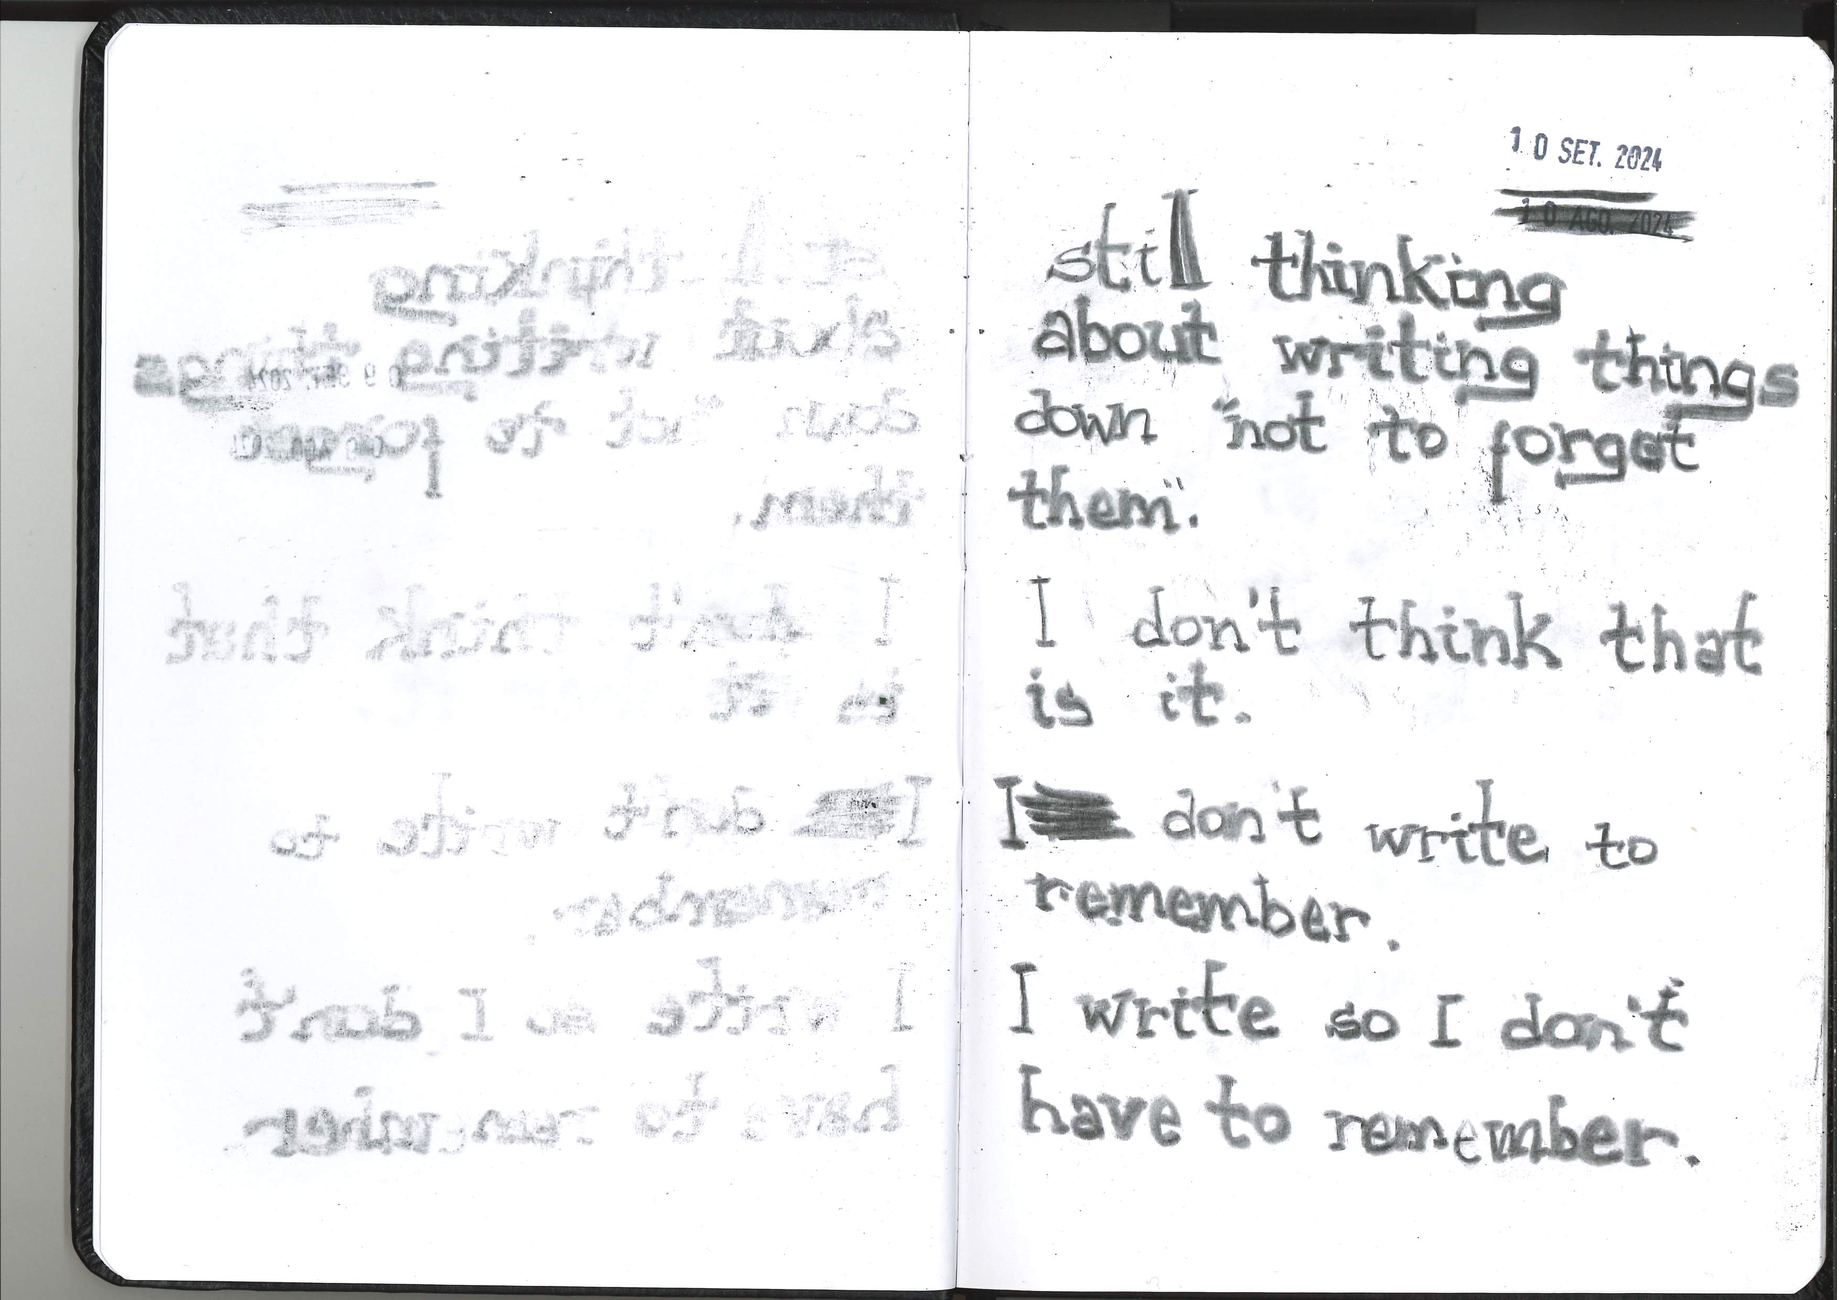 10 SET. 2024
10 AGO. 2024
still thinking
about writing things
down "not to forget
them".
I don't think that
is it.
I don't write to
remember.
I write so I don't
have to remember.